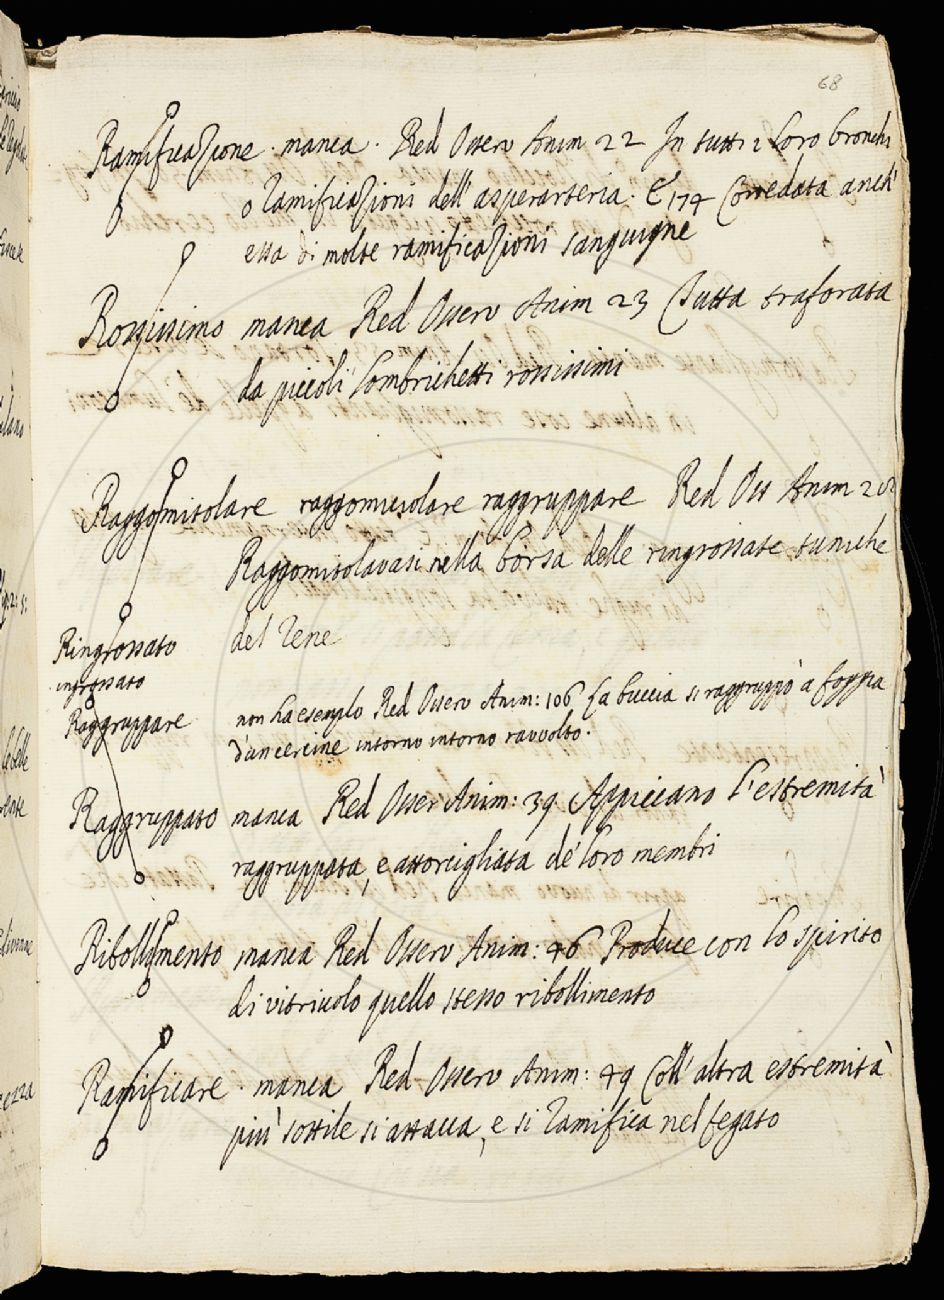 68
Ramificazione · manca · Red Osserv Anim 22 In tutti i loro bronchi
o ramificazioni dell'asperarteria. E 174 Corredata anch'
essa di molte ramificazioni sanguigne
Rossissimo manca Red Osserv Anim 23 Tutta traforata
da piccoli lombrichetti rossissimi
Raggomitolare raggomitolare raggruppare Red Oss Anim
Raggomitolavasi nella borsa delle ringrossate tuniche
del rene
Ringrossato
ingrossato
Raggruppare non ha esemplo Red Osserv Anim: 106 La buccia si raggruppò à foggia
d'un cercine intorno intorno ravvolto.
Raggruppato manca Red Osser Anim: 39 Appiccano l'estremità
raggruppata, e attorcigliata de' loro membri
Ribollimento manca Red Osserv Anim: 46 Produce con lo spirito
di vitriuolo quello stesso ribollimento
Ramificare · manca Red Osserv Anim: 49 Coll'altra estremità
più sottile si attacca, e si ramifica nel fegato